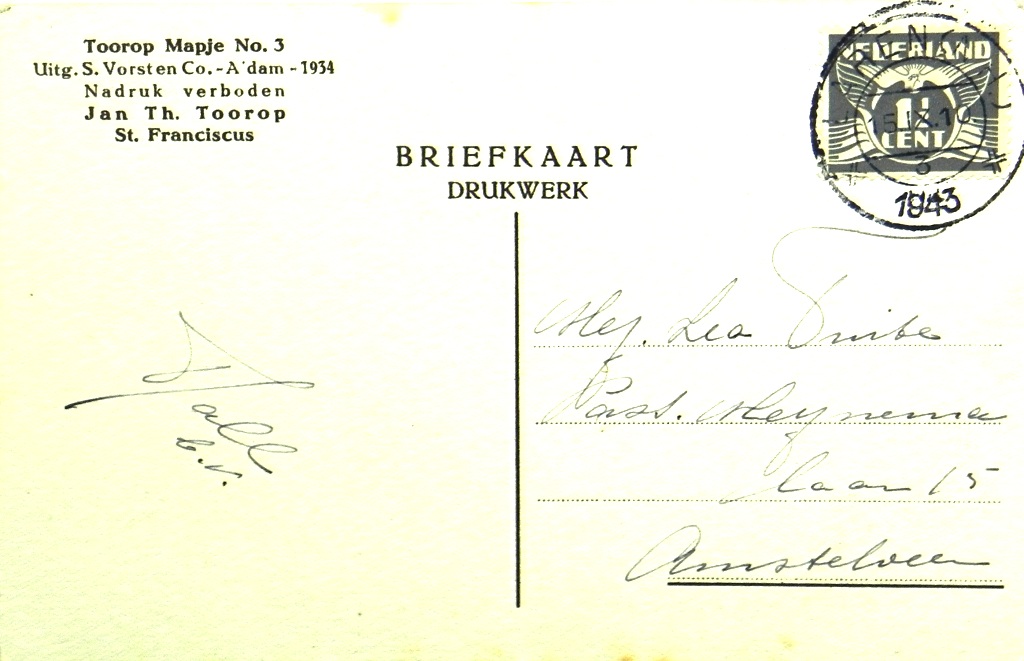 Toorop Mapje No. 3
Uitg. S. Vorst en Co. - A'dam - 1934
Nadruk verboden
Jan Th. Toorop
St. Franciscus
BRIEFKAART
DRUKWERK
NEDERLAND
1½
CENT
15.IX.10
3
1943
Mej. Lea
Past. Meynema
laan 15
Amstelveen